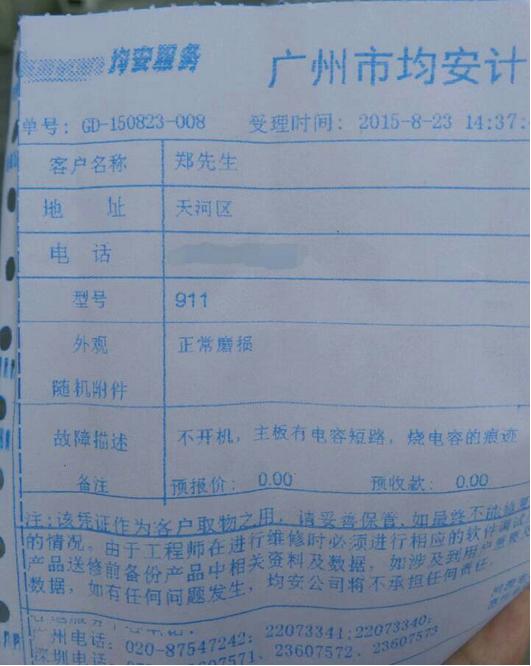 均安服务 广州市均安计
单号: GD-150823-008 受理时间: 2015-8-23 14:37:
客户名称 郑先生
地 址 天河区
电 话
型号 911
外观 正常磨损
随机附件
故障描述 不开机，主板有电容短路，烧电容的痕迹
备注 预报价: 0.00 预收款: 0.00
注:该凭证作为客户取物之用，请妥善保管.如最终不能
的情况。由于工程师在进行维修时必须进行相应的软件调试
产品送修前备份产品中相关资料及数据，如涉及到用户重要
数据，如有任何问题发生，均安公司将不承担任何责任，
广州电话: 020-87547242; 22073341;22073340;
深圳电话: 23607572; 23607573